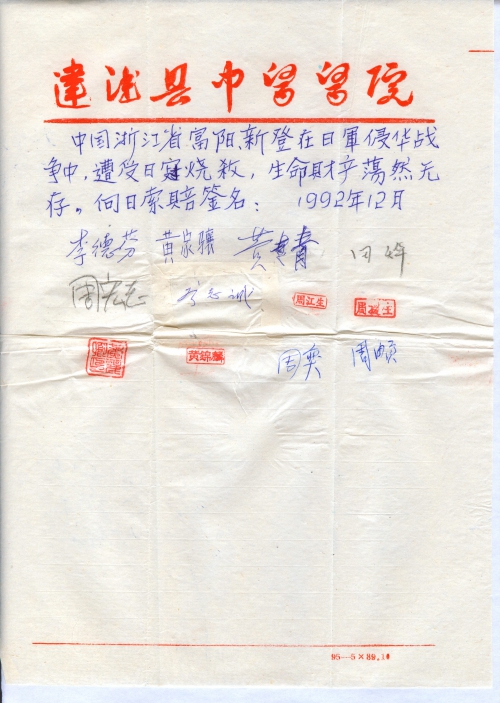 建德县中医医院
中国浙江省富阳新登在日軍侵华战
争中,遭受日寇烧殺,生命財产荡然无
存。向日索賠签名: 1992年12月
李德芬 黄家驤 黄
周宏志 志诚 周江生 周 生
周奕 周
95—5×89.10